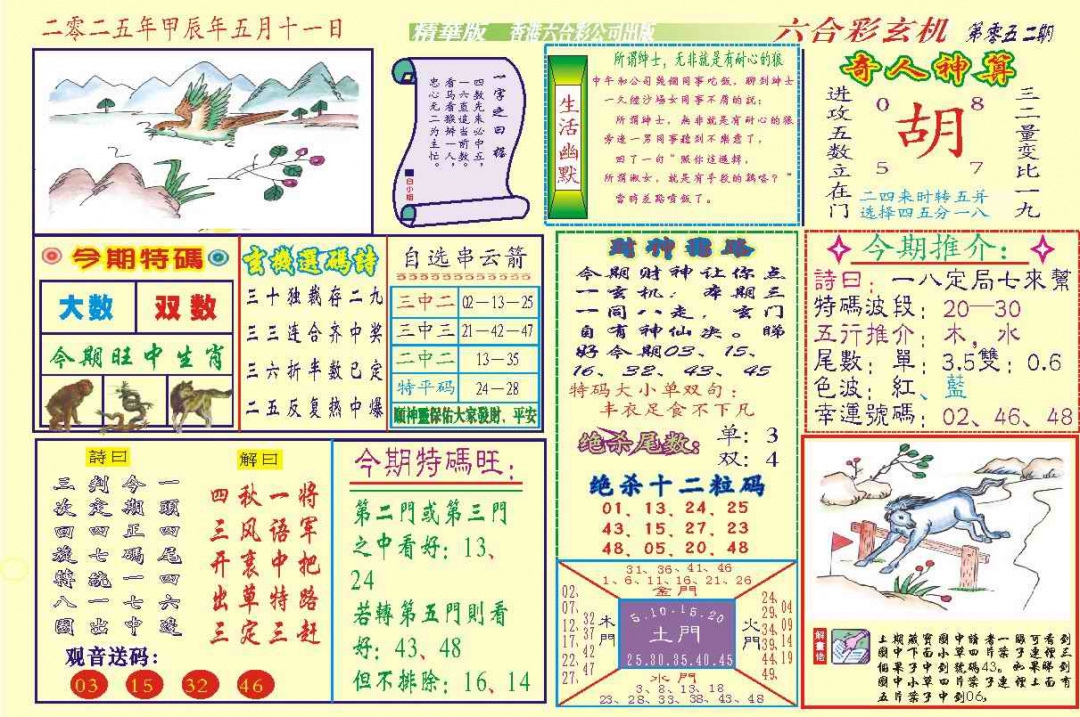 二零二五年甲辰年五月十一日
精華版 香港六合彩公司出版
六合彩玄机 第零五二期
一字之曰:楷
四数先来必中五,
一六直追当前数。
看马看猴蝉一人,
忠心无二为主忙。
白小姐
生活幽默
所谓绅士,无非就是有耐心的狼
中午和公司幾個同事吃飯,聊到紳士
一久經沙場女同事不屑的說:
所謂紳士,無非就是有耐心的狼
旁邊一男同事聽到不樂意了,
回了一句"照你這邏輯,
所謂淑女,就是有手段的鷄咯?"
當時差點噴飯了。
奇人神算
进攻五数立在门
0 8
胡
5 7
三二量变比一九
二四来时转五并
选择四五分一八
今期特碼
大数 双数
今期旺中生肖
玄機選碼詩
三十独裁存二九
三三连合齐中奖
三六折半数已定
二五反复热中爆
自选串云箭
三中二 02—13—25
三中三 21—42—47
二中二 13—35
特平码 24—28
願神靈保佑大家發財、平安
財神指路
今期财神让你点
一玄机:本期三
一同八走,玄门
自有神仙决。睇
好今期03、15、
16、32、43、45
特码大小单双句:
丰衣足食不下凡
绝杀尾数: 单:3
双:4
绝杀十二粒码
01、13、24、25
43、15、27、23
48、05、20、48
今期推介:
詩曰:一八定局七來幫
特碼波段:20—30
五行推介:木,水
尾數:單:3.5雙:0.6
色波:紅、藍
幸運號碼:02、46、48
詩曰
一頭四尾四六邊
今期正碼一七中
判定四七統一出
三次回旋特八圍
解曰
将军把路赶
一语中特三
秋风裹草定
四三开出三
观音送码:
03 15 32 46
今期特碼旺:
第二門或第三門
之中看好:13、
24
若轉第五門則看
好:43、48
但不排除:16、14
31、36、41、46
1、6、11、16、21、26
金門
02、07、12、17、22、27、
32、37、42、47
木門
5.10.15.20
土門
25.30.35.40.45
火門
24、29、34、39、44、49
04、09、14、19
水門
3、8、13、18
23、28、33、38、43、48
解畫佬
上期藏寶圖中讀者一眼可看到
圖中下面小草四片葉子連徑三
個果子中到號碼43。如果睇到
圖中小草四片葉子連徑上面有
五片葉子中到06。